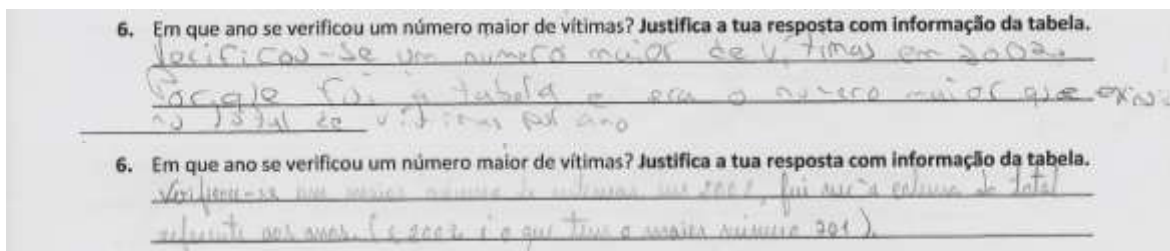 6. Em que ano se verificou um número maior de vítimas? Justifica a tua resposta com informação da tabela.
Verificou-se um numero maior de vitimas em 2002.
Porque fui à tabela e era o numero maior que
no total de vitimas por ano
6. Em que ano se verificou um número maior de vítimas? Justifica a tua resposta com informação da tabela.
Verificou-se um maior número de vitimas em 2002, fui à coluna do total
referente aos anos. (e 2002 é o que tem o maior número 201).